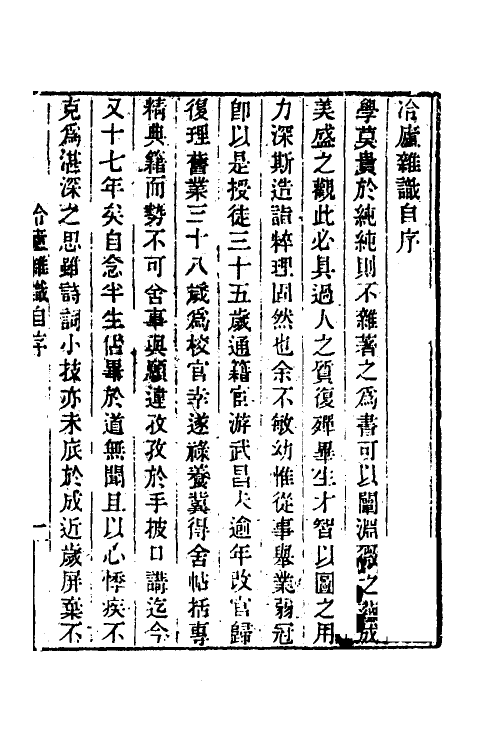 冷廬雜識自序
學莫貴於純純則不雜著之爲書可以闡淵微之蘊成
美盛之觀此必具過人之質復殫畢生才智以圖之用
力深斯造詣粹理固然也余不敏幼惟從事舉業弱冠
卽以是授徒三十五歲通籍宦游武昌未逾年改官歸
復理舊業三十八歲爲校官幸遂祿養冀得舍帖括專
精典籍而勢不可舍事與願違孜孜於手披口講迄今
又十七年矣自念半生佔畢於道無聞且以心悸疾不
克爲湛深之思雖詩詞小技亦未底於成近歲屏棄不
冷廬雜識自序
一